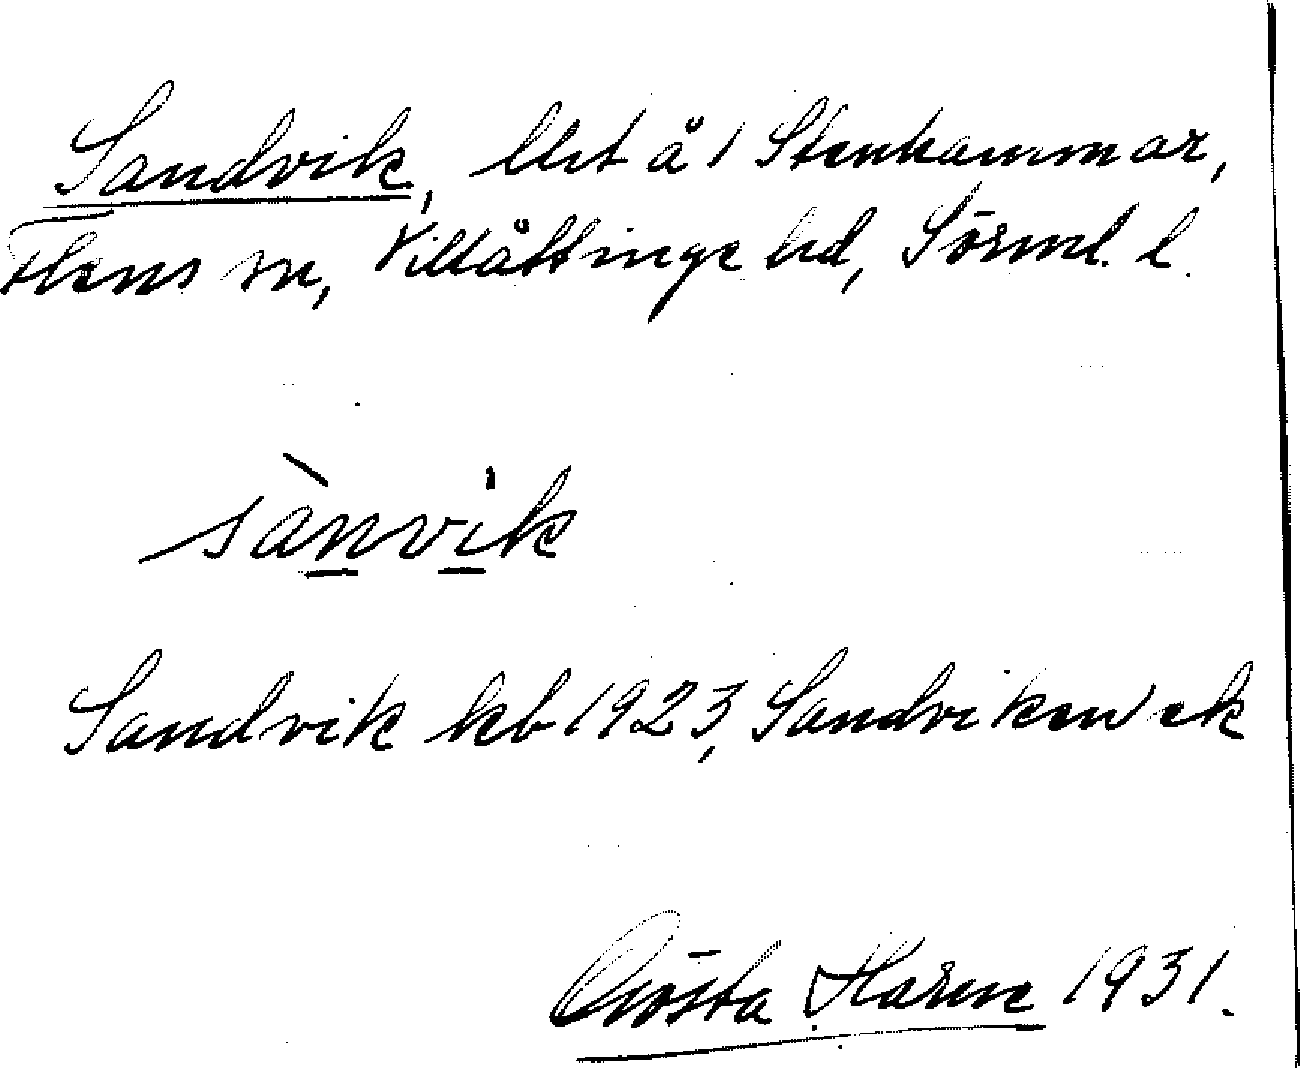 Sandvik, lht å 1 Stenhammar,
Flens sn, Villåttinge hd, Sörml. l.
sànvik
Sandvik kb 1923, Sandviken ek
Gösta Harne 1931.